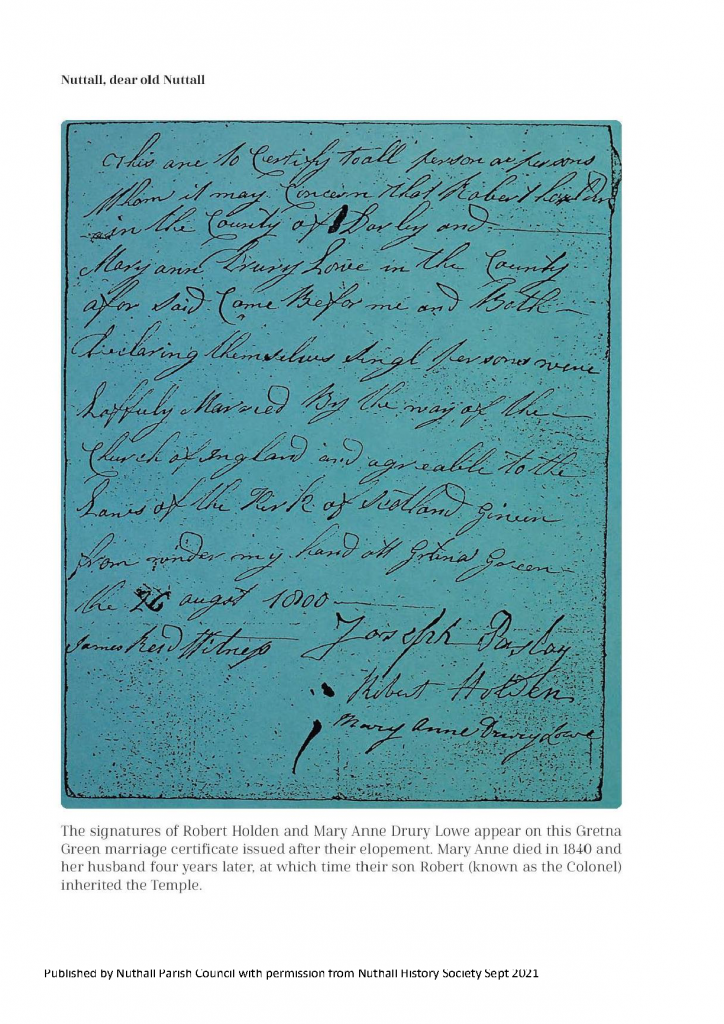 Nuttall, dear old Nuttall
This are to Certify to all person or persons
Whom it may Concern that Robert holden
in the County of Darley and
Mary ann Drury Lowe in the County
afor Said Came Befor me and Both
Declaring themselves Singl persons were
Laffuly Married By the way of the
Church of England and agreable to the
Laws of the Kirk of Scotland given
from onder my hand att Gretna Green
the 26 augst 1800
James Reid Witness Joseph Paslay
Robert Holden
Mary Anne Drury Lowe
The signatures of Robert Holden and Mary Anne Drury Lowe appear on this Gretna
Green marriage certificate issued after their elopement. Mary Anne died in 1840 and
her husband four years later, at which time their son Robert (known as the Colonel)
inherited the Temple.
Published by Nuthall Parish Council with permission from Nuthall History Society Sept 2021